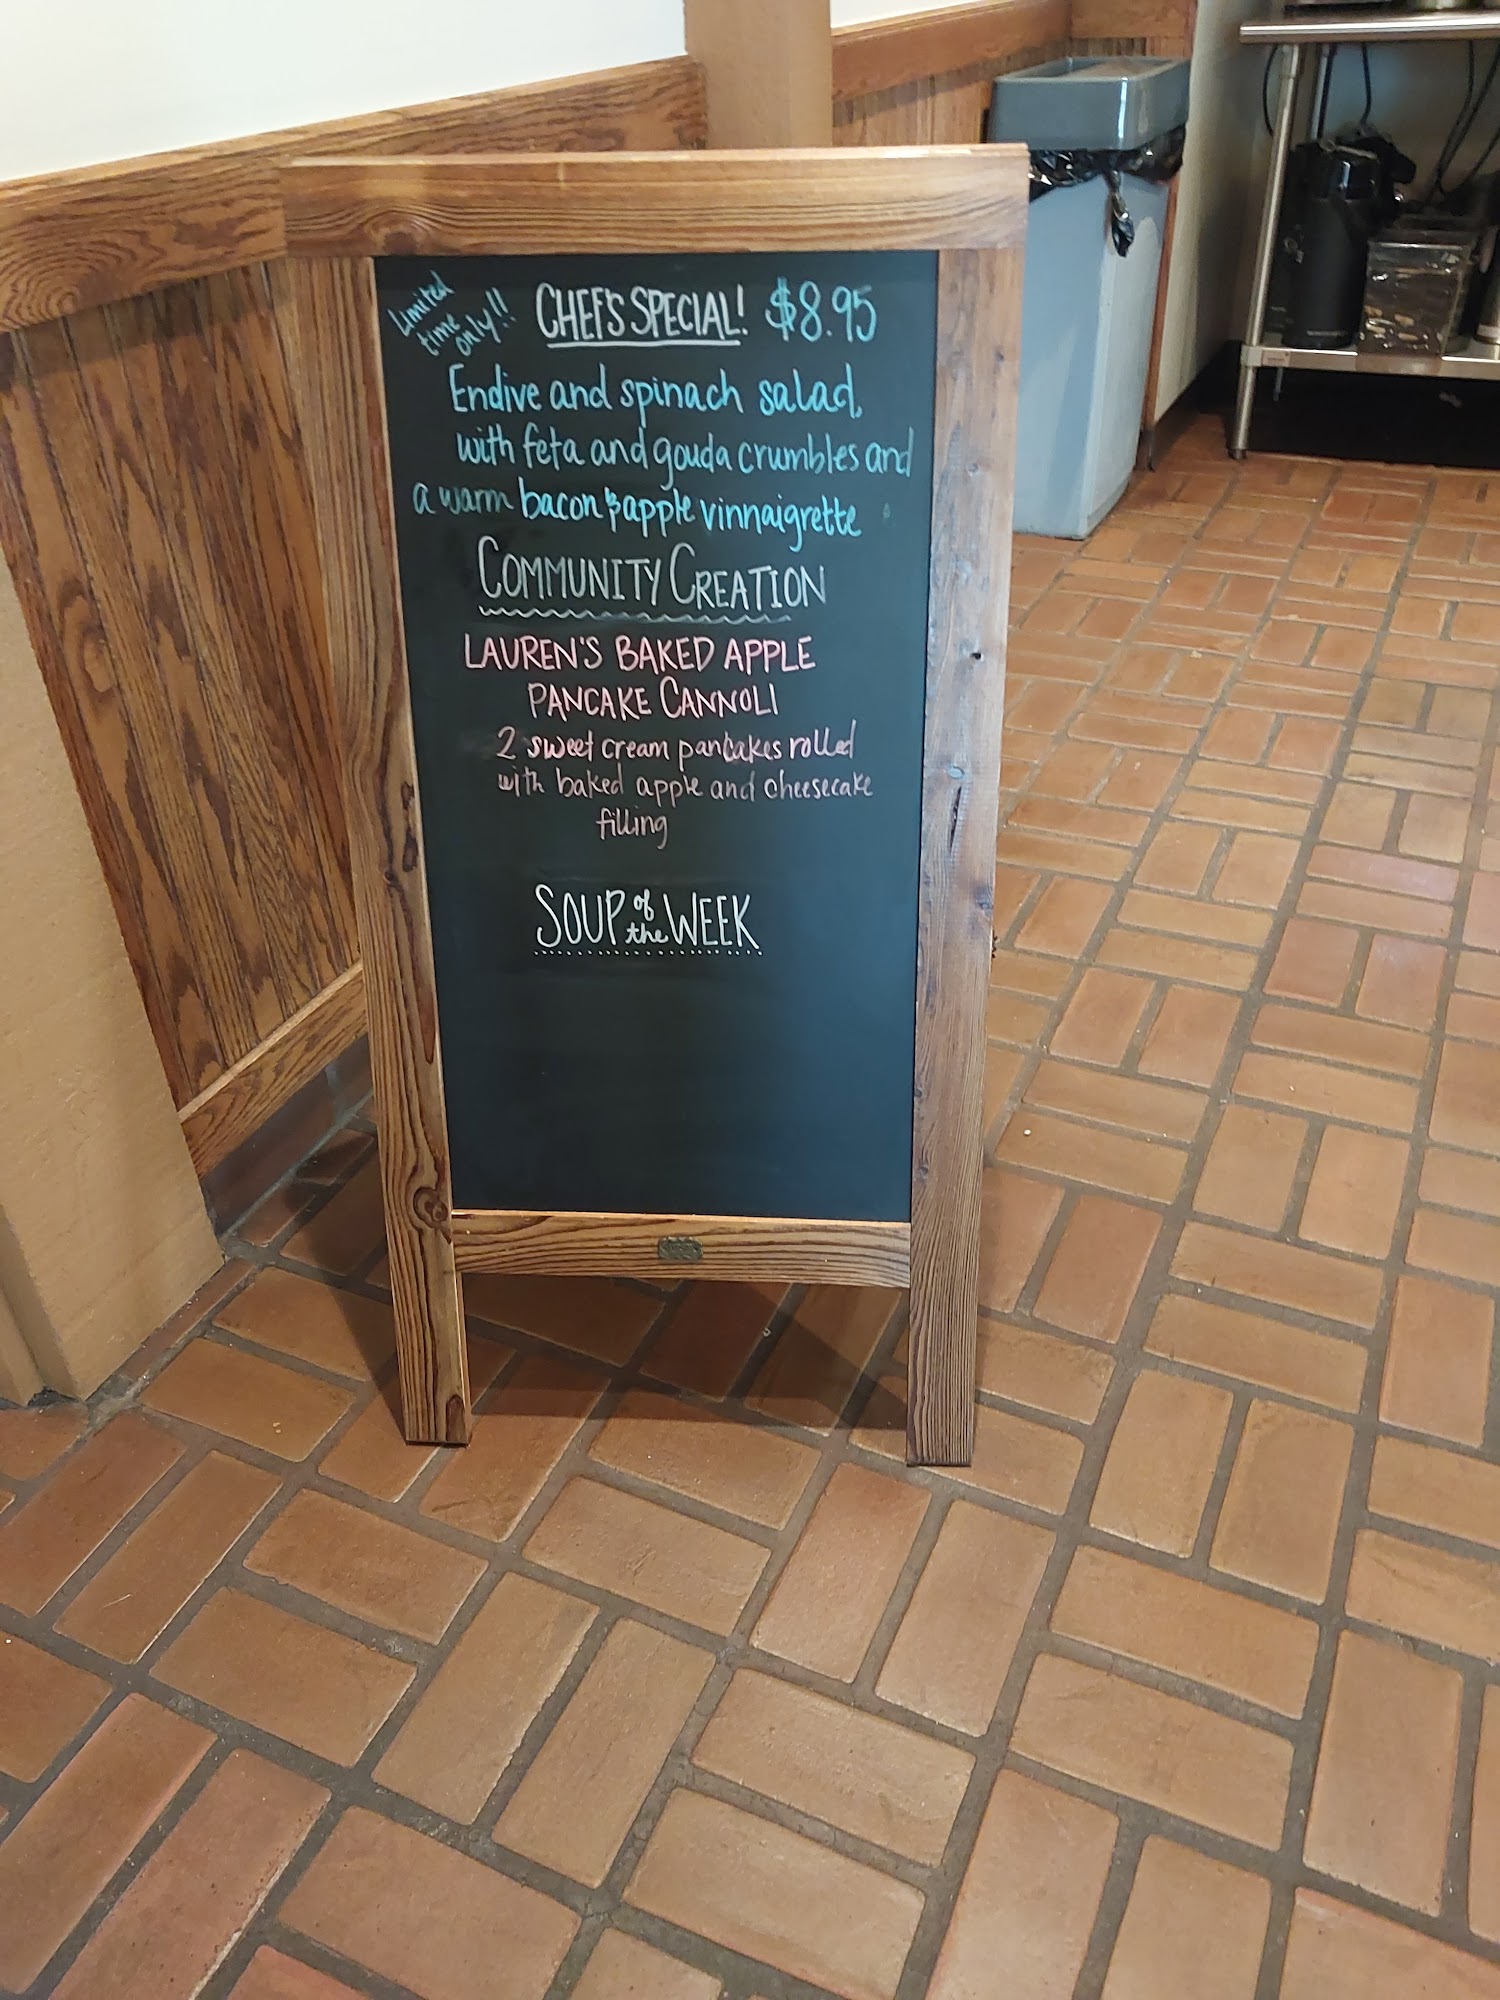 Limited
time
only!!
CHEF'S SPECIAL! $8.95
Endive and spinach salad,
with feta and gouda crumbles and
a warm bacon & apple vinnaigrette
COMMUNITY CREATION
LAUREN'S BAKED APPLE
PANCAKE CANNOLI
2 sweet cream pancakes rolled
with baked apple and cheesecake
filling
SOUP of the WEEK